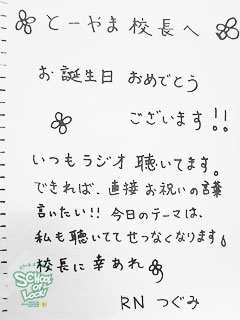 とーやま校長へ
お誕生日 おめでとう
ございます!!
いつもラジオ聴いてます。
できれば、直接お祝いの言葉
言いたい!! 今日のテーマは、
私も聴いててせつなくなります
校長に幸あれ
SCHOOL OF LOCK!
RN つぐみ